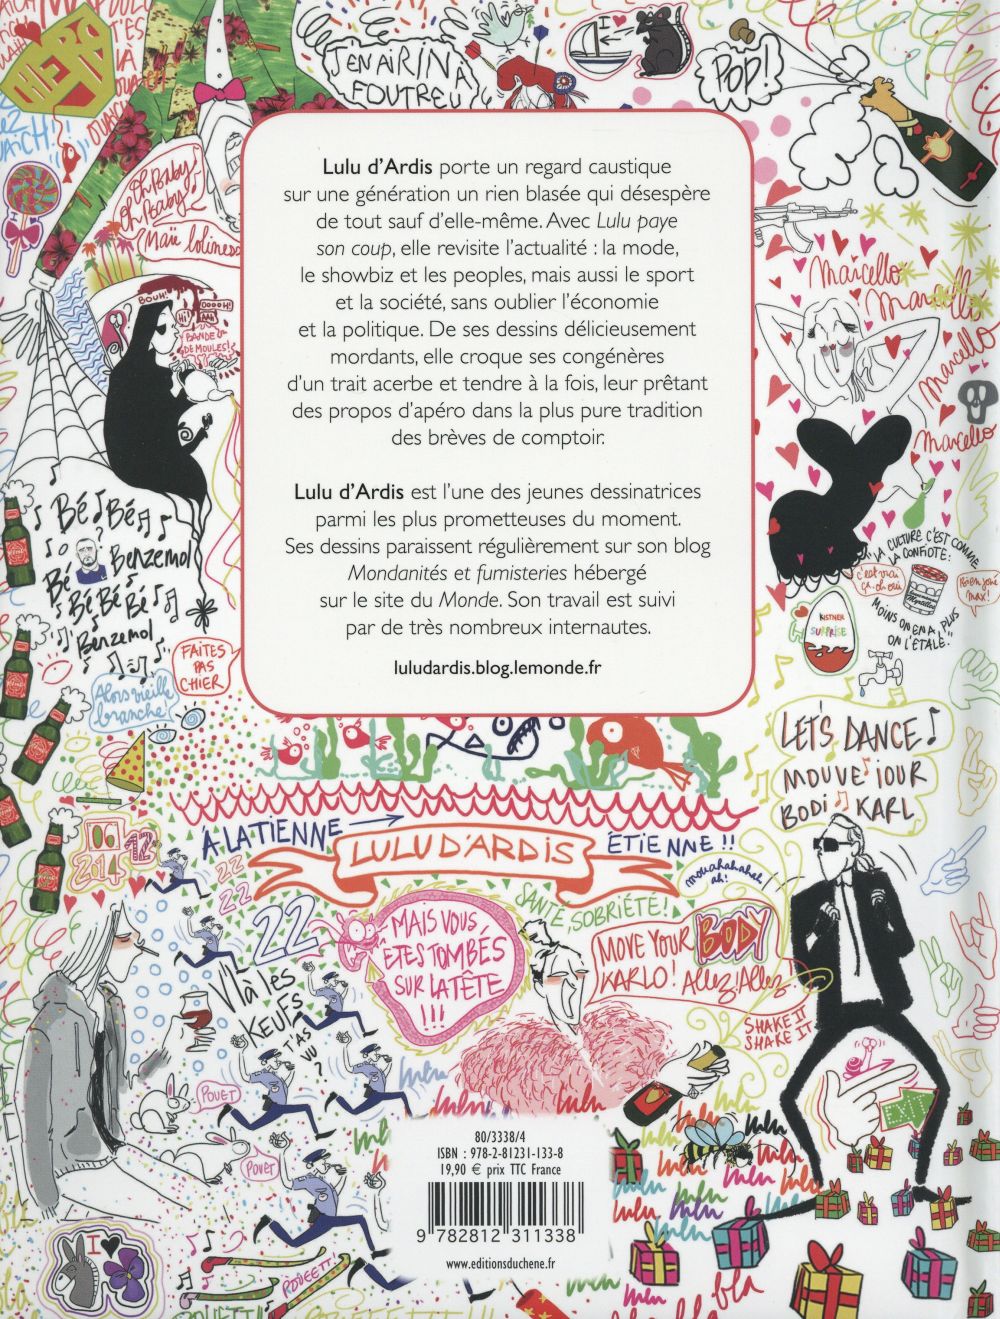 T'ES
LÀ
OUAICH
J'EN AI RIN À
FOUTREU
I ♥
POP!
Oh Baby
Oh Baby
Maïi loliness
BOUH!
Hi!
OOOH!
BANDE
DE MOULES!
Lulu d'Ardis porte un regard caustique
sur une génération un rien blasée qui désespère
de tout sauf d'elle-même. Avec Lulu paye
son coup, elle revisite l'actualité : la mode,
le showbiz et les peoples, mais aussi le sport
et la société, sans oublier l'économie
et la politique. De ses dessins délicieusement
mordants, elle croque ses congénères
d'un trait acerbe et tendre à la fois, leur prêtant
des propos d'apéro dans la plus pure tradition
des brèves de comptoir.
Lulu d'Ardis est l'une des jeunes dessinatrices
parmi les plus prometteuses du moment.
Ses dessins paraissent régulièrement sur son blog
Mondanités et fumisteries hébergé
sur le site du Monde. Son travail est suivi
par de très nombreux internautes.
luludardis.blog.lemonde.fr
Marcello
Marcello
Marcello
Marcello
Marcello
Bé Bé
Bé Benzemol
Bé Bé Bé
Benzemol
FAITES
PAS
CHIER
Alors vieille
branche!
"LA CULTURE C'EST COMME
LA CONFIOTE:
c'est vrai
ça. oh oui
Myrtilles
MOINS ON EN A, PLUS
ON L'ÉTALE!"
KISTNER
SURPRISE
LET'S DANCE
MOUVE IOUR
BODI KARL
À LATIENNE
LULU D'ARDIS
ÉTIENNE!!
mouahahahah
ah!
2014
12
22
22
22
22
V'LÀ LES
KEUFS
T'AS
VU?
MAIS VOUS
ÊTES TOMBÉS
SUR LA TÊTE
!!!
SANTÉ, SOBRIÉTÉ!
MOVE YOUR BODY
KARLO! Allez! Allez!
SHAKE IT
SHAKE IT
EXIT
POUET
POUET
lulu
lulu
lulu
lulu
lulu
lulu
lulu
80/3338/4
ISBN : 978-2-81231-133-8
19,90 € prix TTC France
9 782812 311338
www.editionsduchene.fr
I ♥
POUEETT
bla
bla